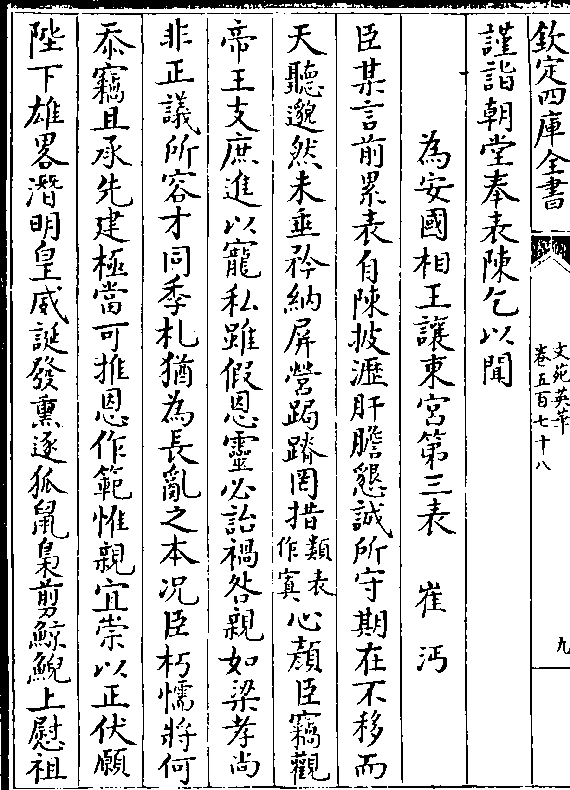 欽定四庫全書
文苑英華
卷五百七十八
九
謹詣朝堂奉表陳乞以聞
為安國相王讓東宮第三表 崔沔
臣某言前累表自陳披瀝肝膽懇誠所守期在不移而
天聽邈然未垂矜納屏營跼蹐罔措類表作寘心顔臣竊觀
帝王支庶進以寵私雖假恩靈必詒禍咎親如梁孝尚
非正議所容才同季札猶為長亂之本况臣朽懦將何
忝竊且承先建極當可推恩作範惟親宜崇以正伏願
陛下雄畧潛明皇威誕發熏逐狐鼠梟剪鯨鯢上慰祖